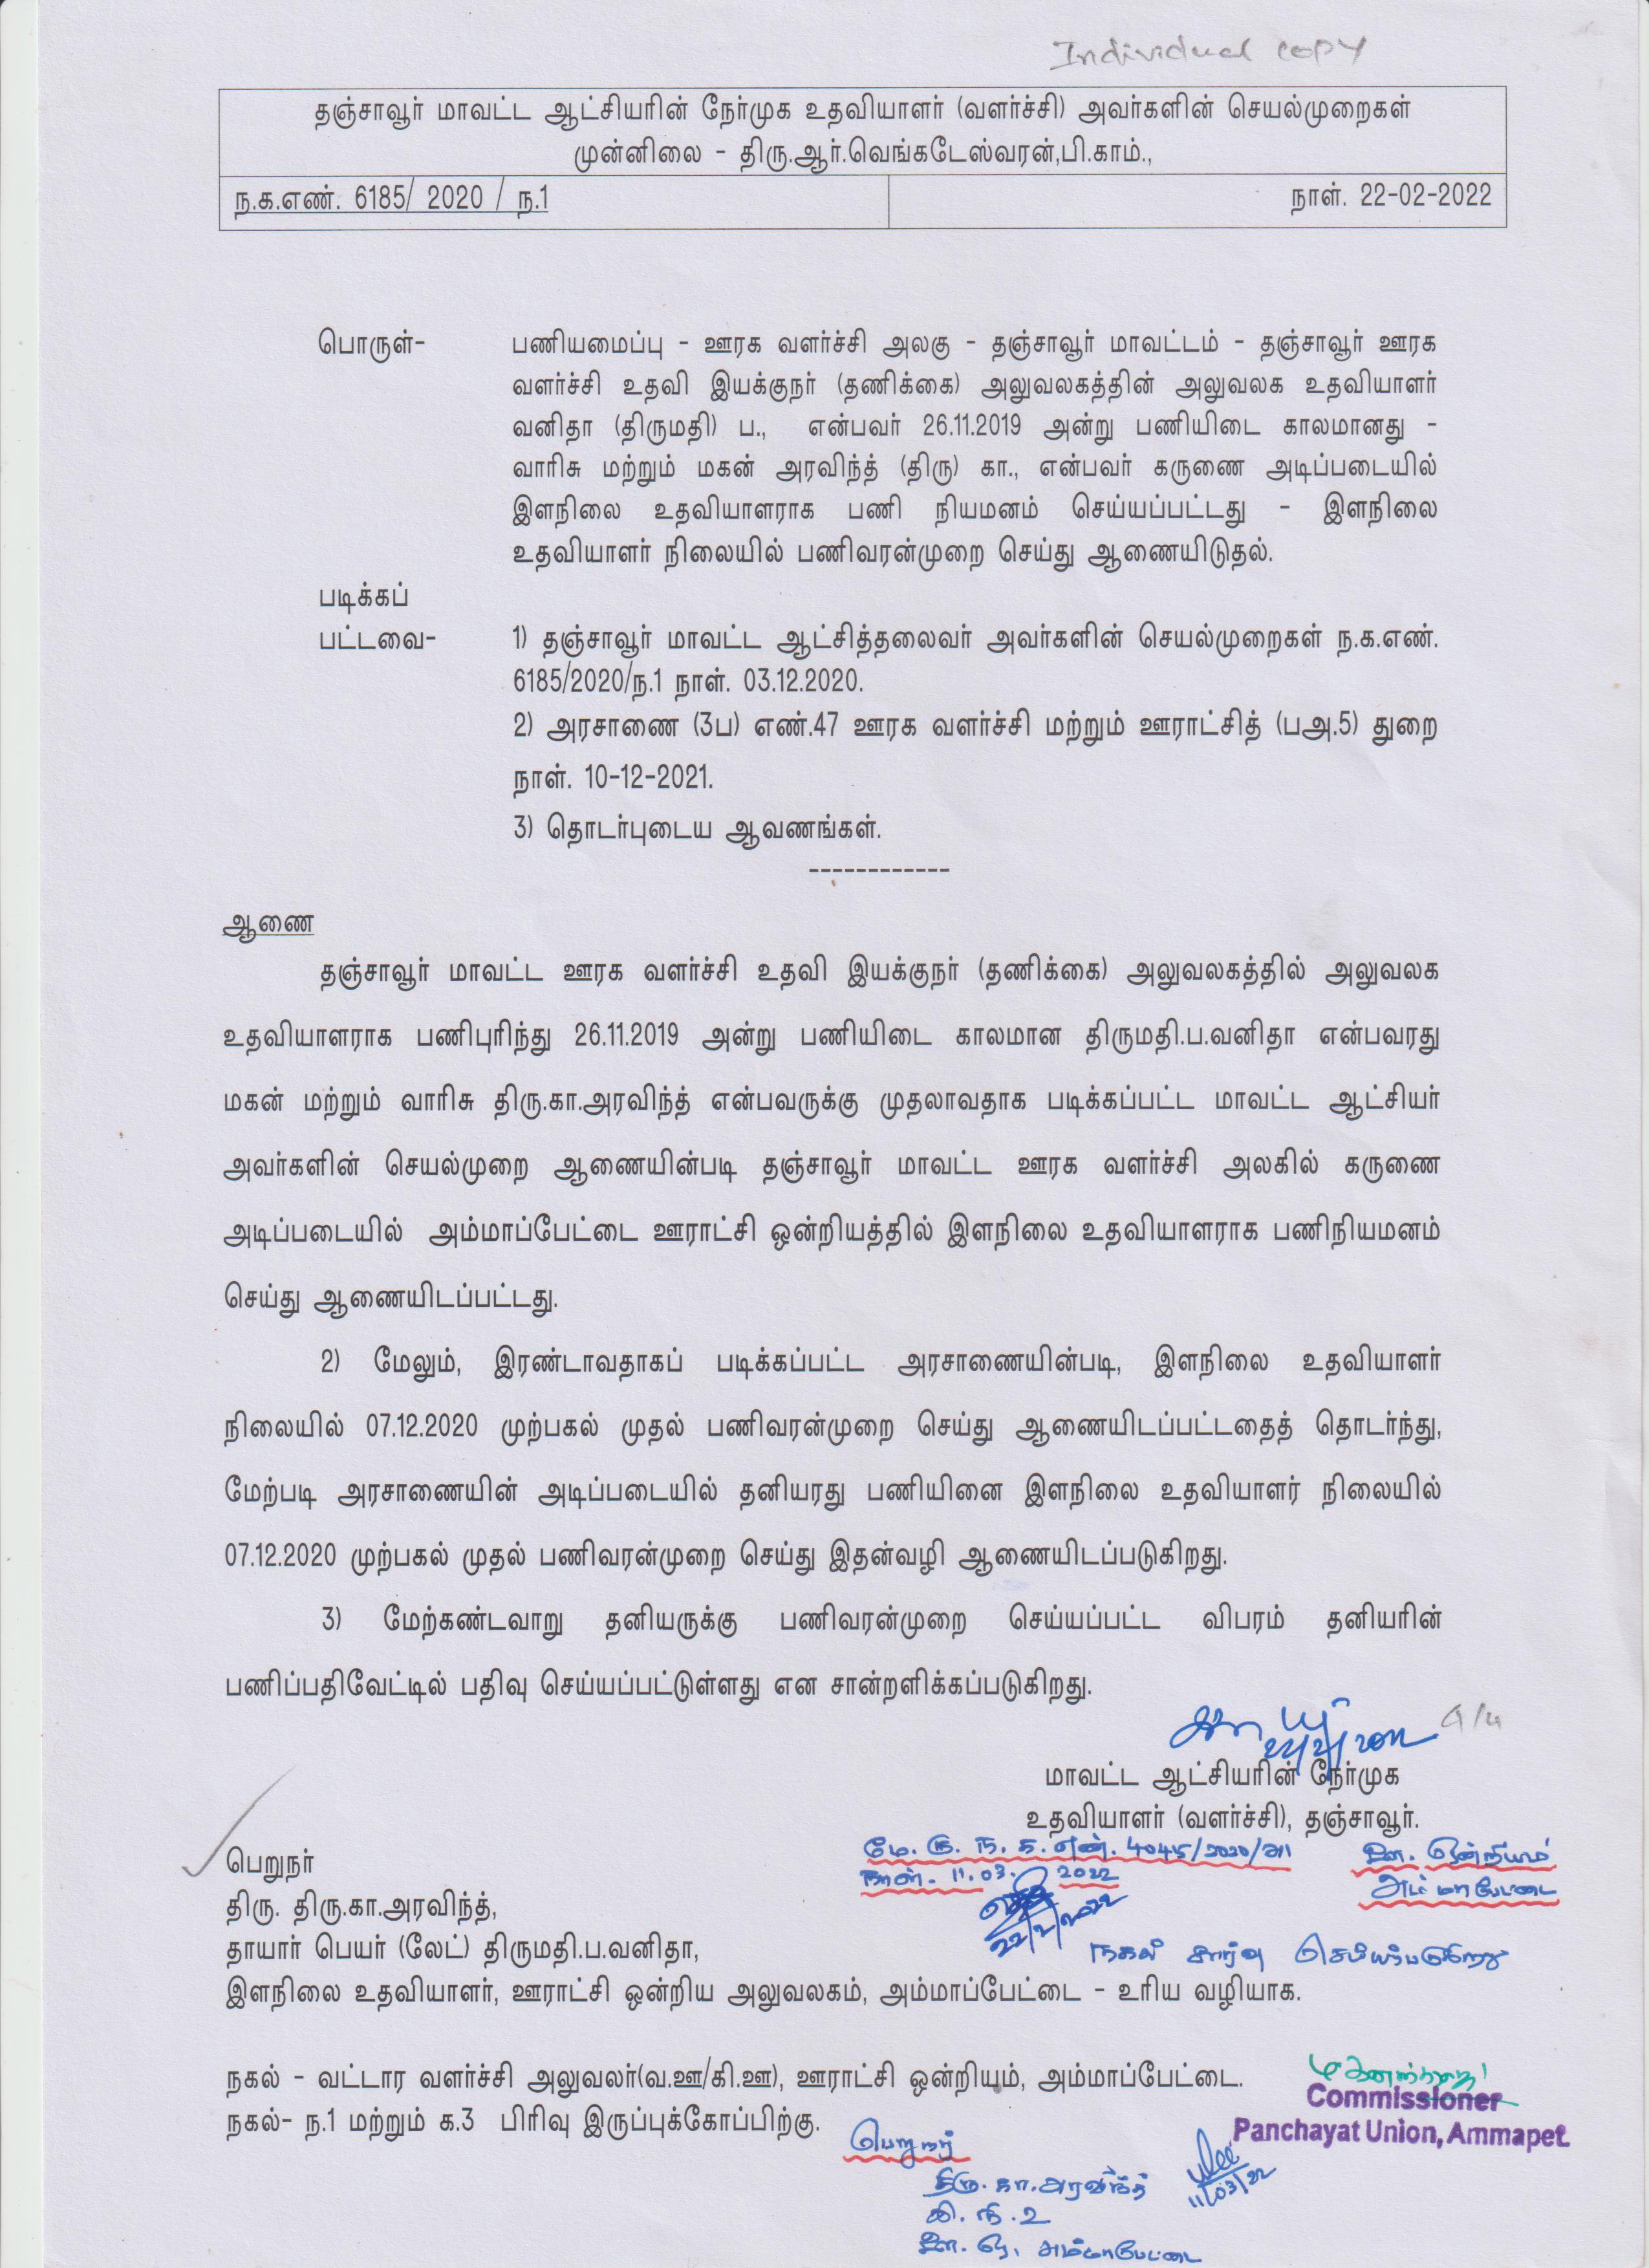 Individual copy
தஞ்சாவூர் மாவட்ட ஆட்சியரின் நேர்முக உதவியாளர் (வளர்ச்சி) அவர்களின் செயல்முறைகள்
முன்னிலை - திரு.ஆர்.வெங்கடேஸ்வரன்,பி.காம்.,
ந.க.எண். 6185/ 2020 / ந.1 நாள். 22-02-2022
பொருள்- பணியமைப்பு - ஊரக வளர்ச்சி அலகு - தஞ்சாவூர் மாவட்டம் - தஞ்சாவூர் ஊரக
வளர்ச்சி உதவி இயக்குநர் (தணிக்கை) அலுவலகத்தின் அலுவலக உதவியாளர்
வனிதா (திருமதி) ப., என்பவர் 26.11.2019 அன்று பணியிடை காலமானது -
வாரிசு மற்றும் மகன் அரவிந்த் (திரு) கா., என்பவர் கருணை அடிப்படையில்
இளநிலை உதவியாளராக பணி நியமனம் செய்யப்பட்டது - இளநிலை
உதவியாளர் நிலையில் பணிவரன்முறை செய்து ஆணையிடுதல்.
படிக்கப்
பட்டவை- 1) தஞ்சாவூர் மாவட்ட ஆட்சித்தலைவர் அவர்களின் செயல்முறைகள் ந.க.எண்.
6185/2020/ந.1 நாள். 03.12.2020.
2) அரசாணை (3ப) எண்.47 ஊரக வளர்ச்சி மற்றும் ஊராட்சித் (பஅ.5) துறை
நாள். 10-12-2021.
3) தொடர்புடைய ஆவணங்கள்.
------------
ஆணை
தஞ்சாவூர் மாவட்ட ஊரக வளர்ச்சி உதவி இயக்குநர் (தணிக்கை) அலுவலகத்தில் அலுவலக
உதவியாளராக பணிபுரிந்து 26.11.2019 அன்று பணியிடை காலமான திருமதி.ப.வனிதா என்பவரது
மகன் மற்றும் வாரிசு திரு.கா.அரவிந்த் என்பவருக்கு முதலாவதாக படிக்கப்பட்ட மாவட்ட ஆட்சியர்
அவர்களின் செயல்முறை ஆணையின்படி தஞ்சாவூர் மாவட்ட ஊரக வளர்ச்சி அலகில் கருணை
அடிப்படையில் அம்மாப்பேட்டை ஊராட்சி ஒன்றியத்தில் இளநிலை உதவியாளராக பணிநியமனம்
செய்து ஆணையிடப்பட்டது.
2) மேலும், இரண்டாவதாகப் படிக்கப்பட்ட அரசாணையின்படி, இளநிலை உதவியாளர்
நிலையில் 07.12.2020 முற்பகல் முதல் பணிவரன்முறை செய்து ஆணையிடப்பட்டதைத் தொடர்ந்து,
மேற்படி அரசாணையின் அடிப்படையில் தனியரது பணியினை இளநிலை உதவியாளர் நிலையில்
07.12.2020 முற்பகல் முதல் பணிவரன்முறை செய்து இதன்வழி ஆணையிடப்படுகிறது.
3) மேற்கண்டவாறு தனியருக்கு பணிவரன்முறை செய்யப்பட்ட விபரம் தனியரின்
பணிப்பதிவேட்டில் பதிவு செய்யப்பட்டுள்ளது என சான்றளிக்கப்படுகிறது.
மாவட்ட ஆட்சியரின் நேர்முக
உதவியாளர் (வளர்ச்சி), தஞ்சாவூர்.
மே. கு. ந. க. எண். 4045/2020/அ1 ஊ. ஒன்றியம்
நாள். 11.03.2022 அம்மாபேட்டை
பெறுநர்
திரு. திரு.கா.அரவிந்த்,
தாயார் பெயர் (லேட்) திருமதி.ப.வனிதா,
நகல் சார்வு செய்யப்படுகிறது
இளநிலை உதவியாளர், ஊராட்சி ஒன்றிய அலுவலகம், அம்மாப்பேட்டை - உரிய வழியாக.
நகல் - வட்டார வளர்ச்சி அலுவலர்(வ.ஊ/கி.ஊ), ஊராட்சி ஒன்றியும், அம்மாப்பேட்டை.
Commissioner
நகல்- ந.1 மற்றும் க.3 பிரிவு இருப்புக்கோப்பிற்கு.
Panchayat Union, Ammapet.
பெறுநர்
11/03/22
திரு. கா.அரவிந்த்
இ. நி. உ
ஊ. ஒ, அம்மாபேட்டை